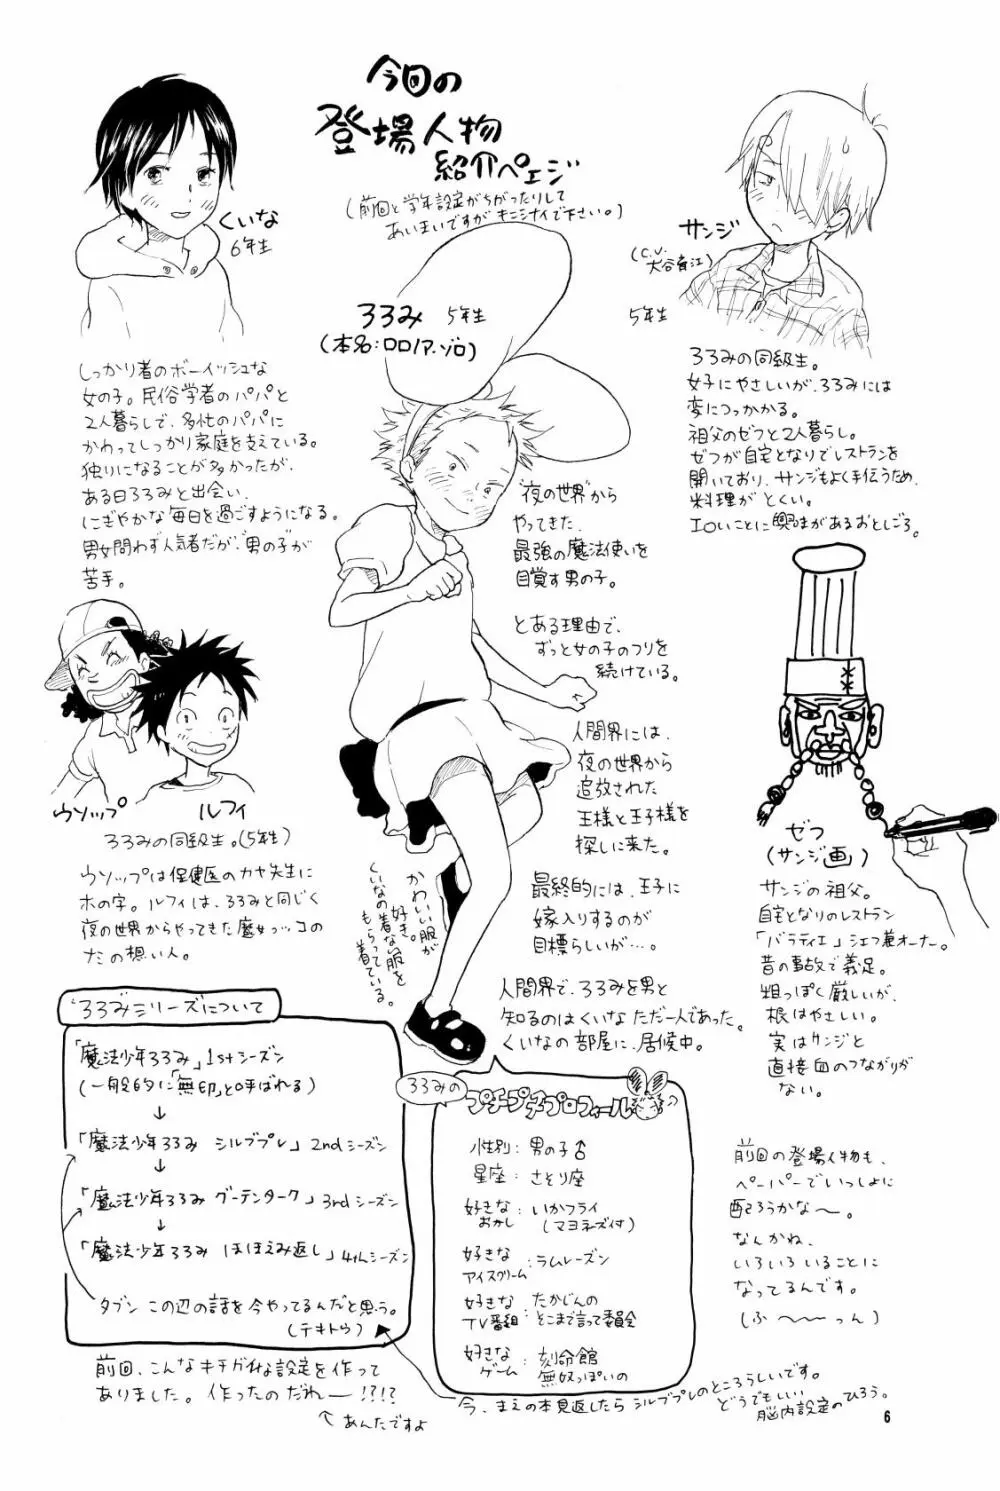 今回の
登場人物
紹介ページ
(前回と学年設定がちがったりして
あいまいですが キニシナイで下さい。)
くいな
6年生
しっかり者のボーイッシュな
女の子。民俗学者のパパと
2人暮らしで、多忙のパパに
かわってしっかり家庭を支えている。
独りになることが多かったが、
ある日ろろみと出会い、
にぎやかな毎日を過ごすようになる。
男女問わず人気者だが、"男の子"が
苦手。
サンジ
(C.V.
大谷育江)
5年生
ろろみの同級生。
女子にやさしいが、ろろみには
変につっかかる。
祖父のゼフと2人暮らし。
ゼフが自宅となりでレストランを
開いており、サンジもよく手伝うため、
料理がとくい。
エロいことに興味があるおとしごろ。
ろろみ 5年生
(本名:ロロノア・ゾロ)
"夜の世界"から
やってきた、
最強の魔法使いを
目覚す男の子。
とある理由で、
ずっと女の子のフリを
続けている。
人間界には、
夜の世界から
追放された
王様と王子様を
探しに来た。
最終的には、王子に
嫁入りするのが
目標らしいが…。
人間界で、ろろみを男と
知るのはくいな ただ一人であった。
くいなの部屋に、居候中。
かわいい服が
好き。
くいなの着ない服を
もらって
着ている。
ウソップ
ルフィ
ろろみの同級生。(5年生)
ウソップは保健医のカヤ先生に
ホの字。ルフィは、ろろみと同じく
夜の世界からやってきた魔女っコの
ナミの想い人。
ゼフ
(サンジ画)
サンジの祖父。
自宅となりのレストラン
「バラティエ」シェフ兼オーナー。
昔の事故で義足。
粗っぽく厳しいが、
根はやさしい。
実はサンジと
直接血のつながりが
ない。
ろろみシリーズについて
「魔法少年ろろみ」1stシーズン
(一般的に「無印」と呼ばれる)
↓
「魔法少年ろろみ シルブプレ」2ndシーズン
↓
「魔法少年ろろみ グーテンターク」3rdシーズン
↓
「魔法少年ろろみ ほほえみ返し」4thシーズン
タブン この辺の話を今やってるんだと思う。
(テキトウ)
前回、こんなキチガイな設定を作って
ありました。作ったのだれー!?!?
↖あんたですよ
ろろみの
プチプチプロフィール♪
性別: 男の子♂
星座: さそり座
好きな
おかし : いかフライ
(マヨネーズ付)
好きな
アイスクリーム : ラムレーズン
好きな
TV番組 : たかじんの
そこまで言って委員会
好きな
ゲーム : 刻命館
無奴っぽいの
今、まえの本見返したら シルブプレのところらしいです。
どうでもいい
脳内設定のひろう。
前回の登場人物も、
ペーパーでいっしょに
配ろうかな〜。
なんかね、
いろいろいることに
なってるんです。
(ふ〜〜っん)
6